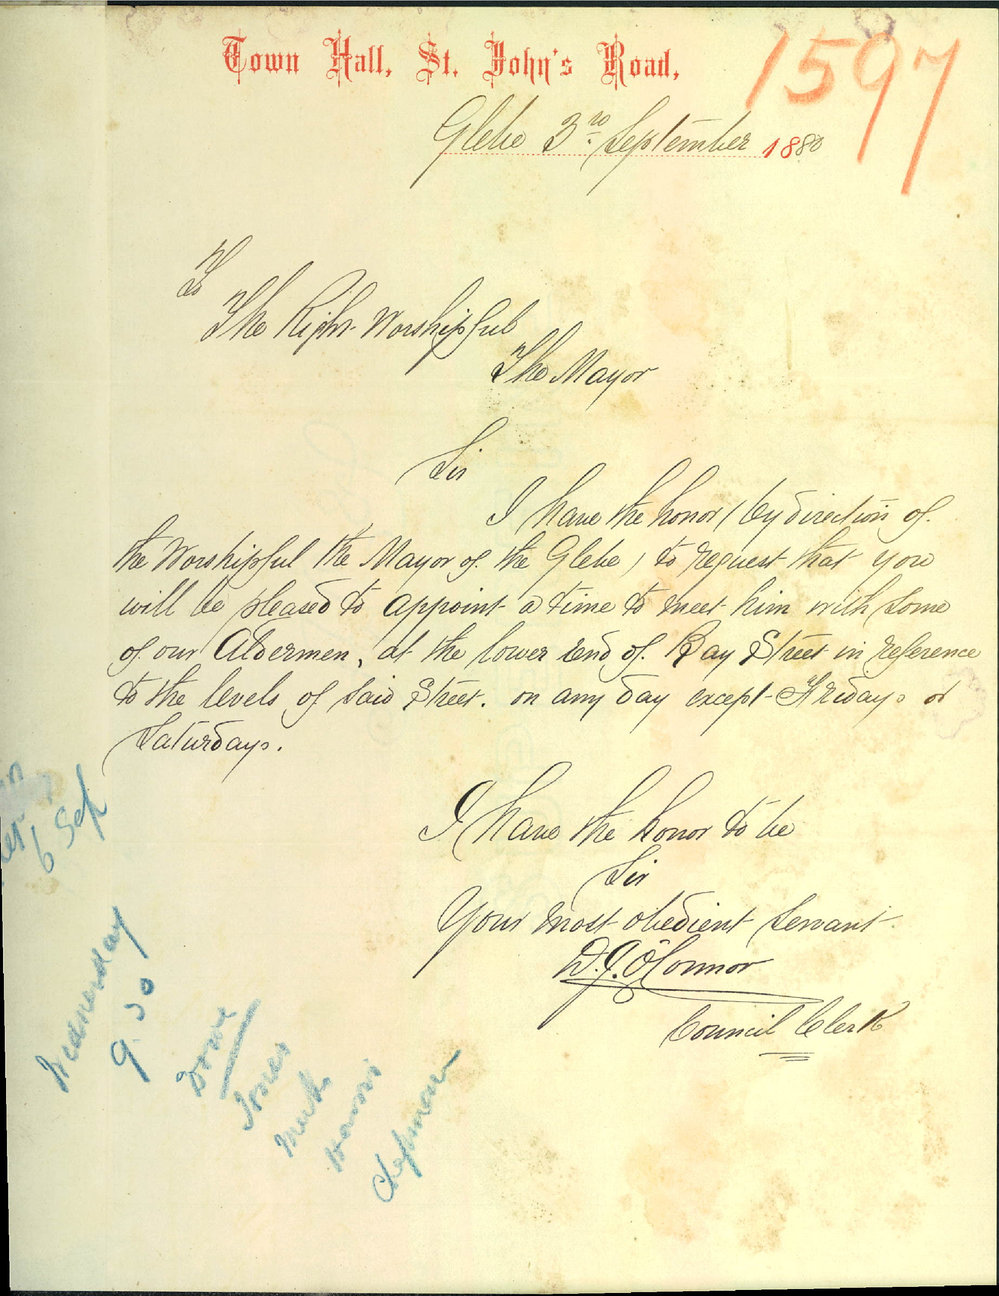 Town Hall, St. John's Road,
1597
Glebe 3rd September 1880
To
The Right Worshipful
The Mayor
Sir
I have the honor (by direction of
the Worshipful the Mayor of the Glebe) to request that you
will be pleased to appoint a time to meet him with some
of our Aldermen, at the lower end of Bay Street in reference
to the levels of said Street. on any day except Fridays or
Saturdays.
I have the honor to be
Sir
Your most obedient servant
D. J. O'Connor
Council Clerk
6 Sep
Wednesday
9.30
Done
Jones
Meeks
Harris
Chapman